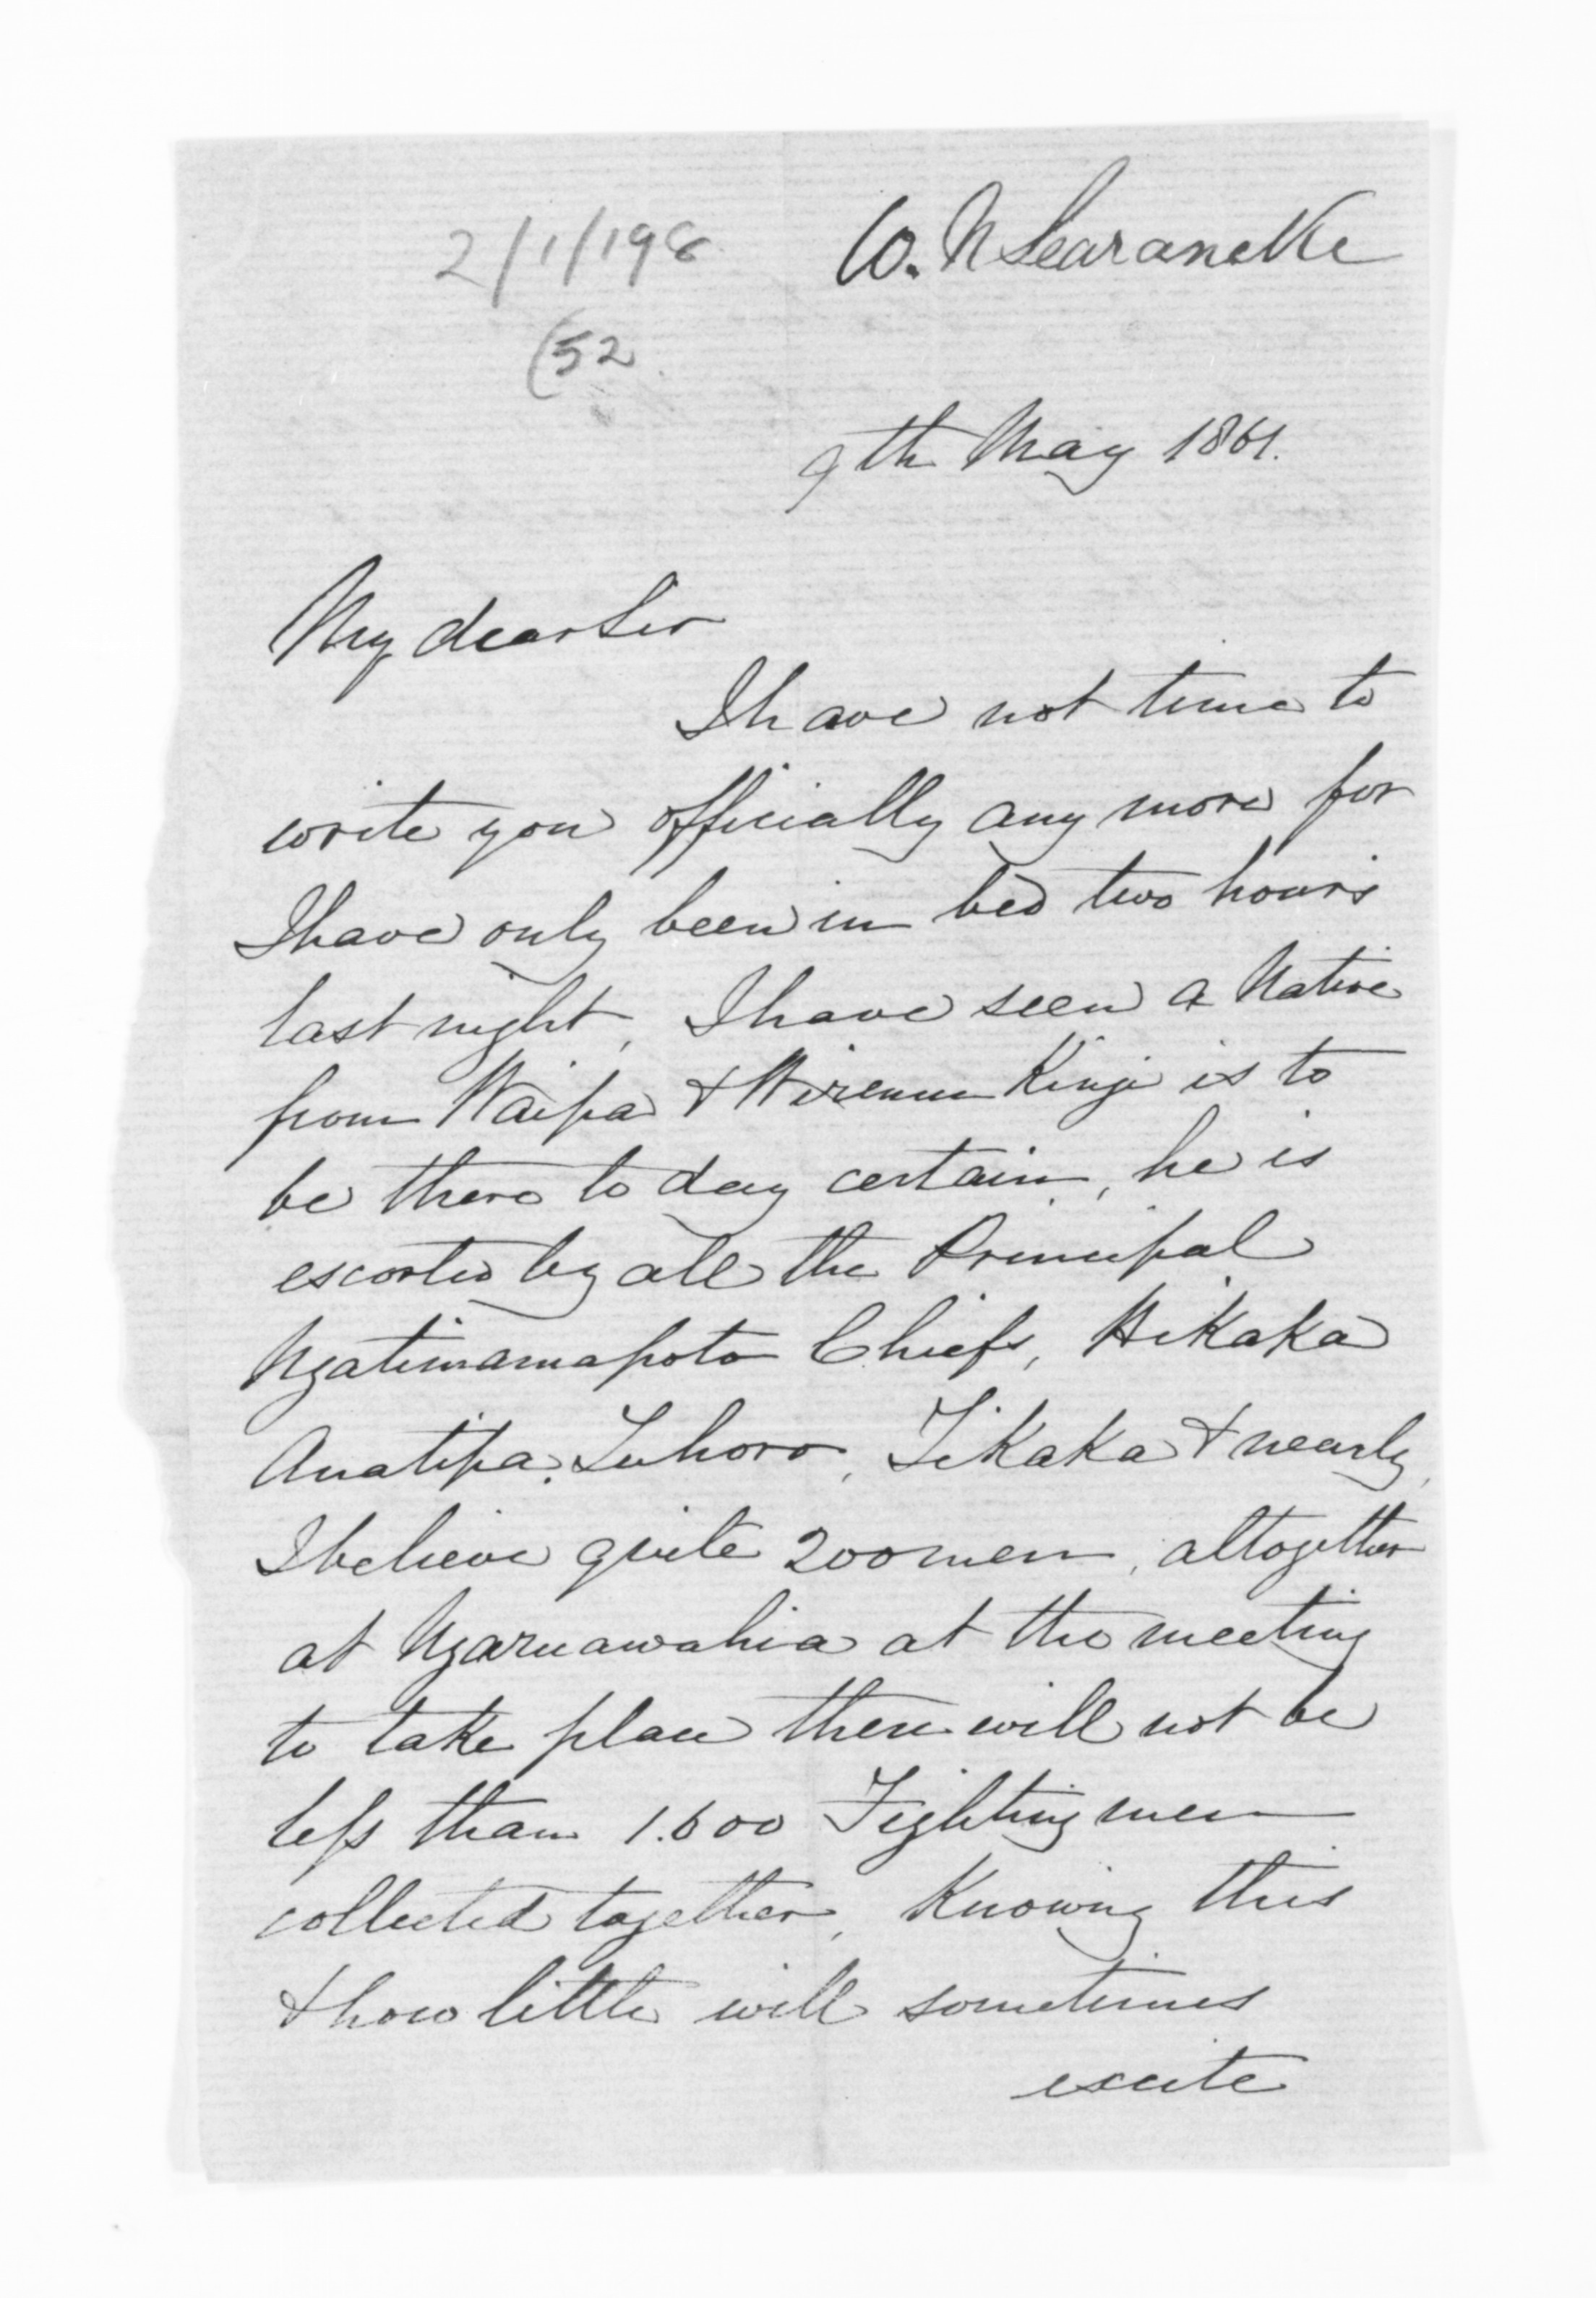 2/1/198
W. N Searancke
(52
9th May 1861.
My dear Sir
I have not time to
write you officially any more for
I have only been in bed two hours
last night, I have seen a Native
from Waipa & Wiremu Kingi is to
be there to day certain, he is
escorted by all the Principal
Ngatimamapoto Chiefs, Hikaka
Anatipa, Tuhoro, Tikaka & nearly,
I believe quite 200 men, altogether
at Ngaruawahia at the meeting
to take place there will not be
less than 1.600 Fighting men
collected together, Knowing this
& how little will sometimes
excite